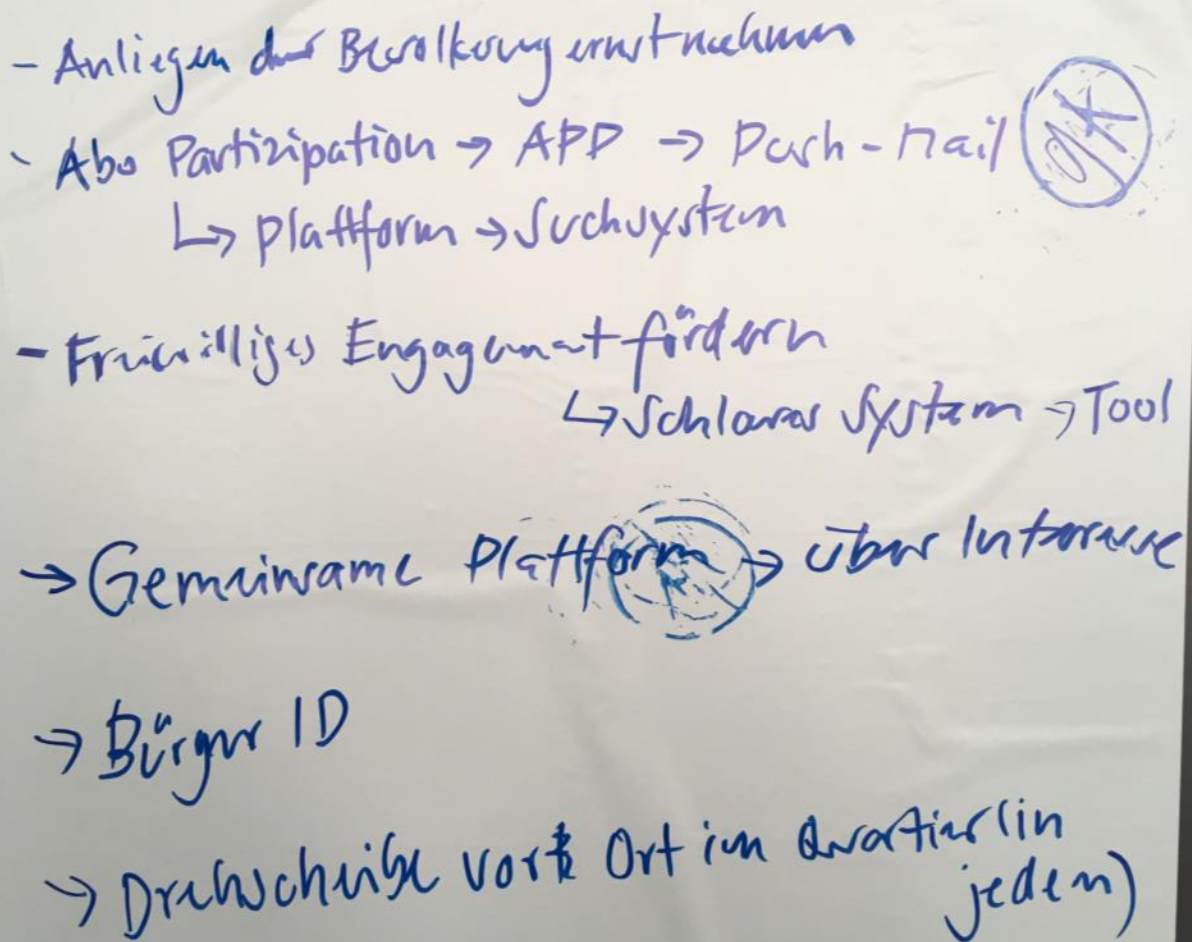 - Anliegen der Bevölkerung ernstnehmen
- Abo Partizipation → APP → Push-Mail
↳ Plattform → Suchsystem
- Freiwilliges Engagement fördern
↳ Schlaues System → Tool
→ Gemeinsame Plattform → über Interesse
→ Bürger ID
→ Drehscheibe vor Ort im Quartier (in
jedem)